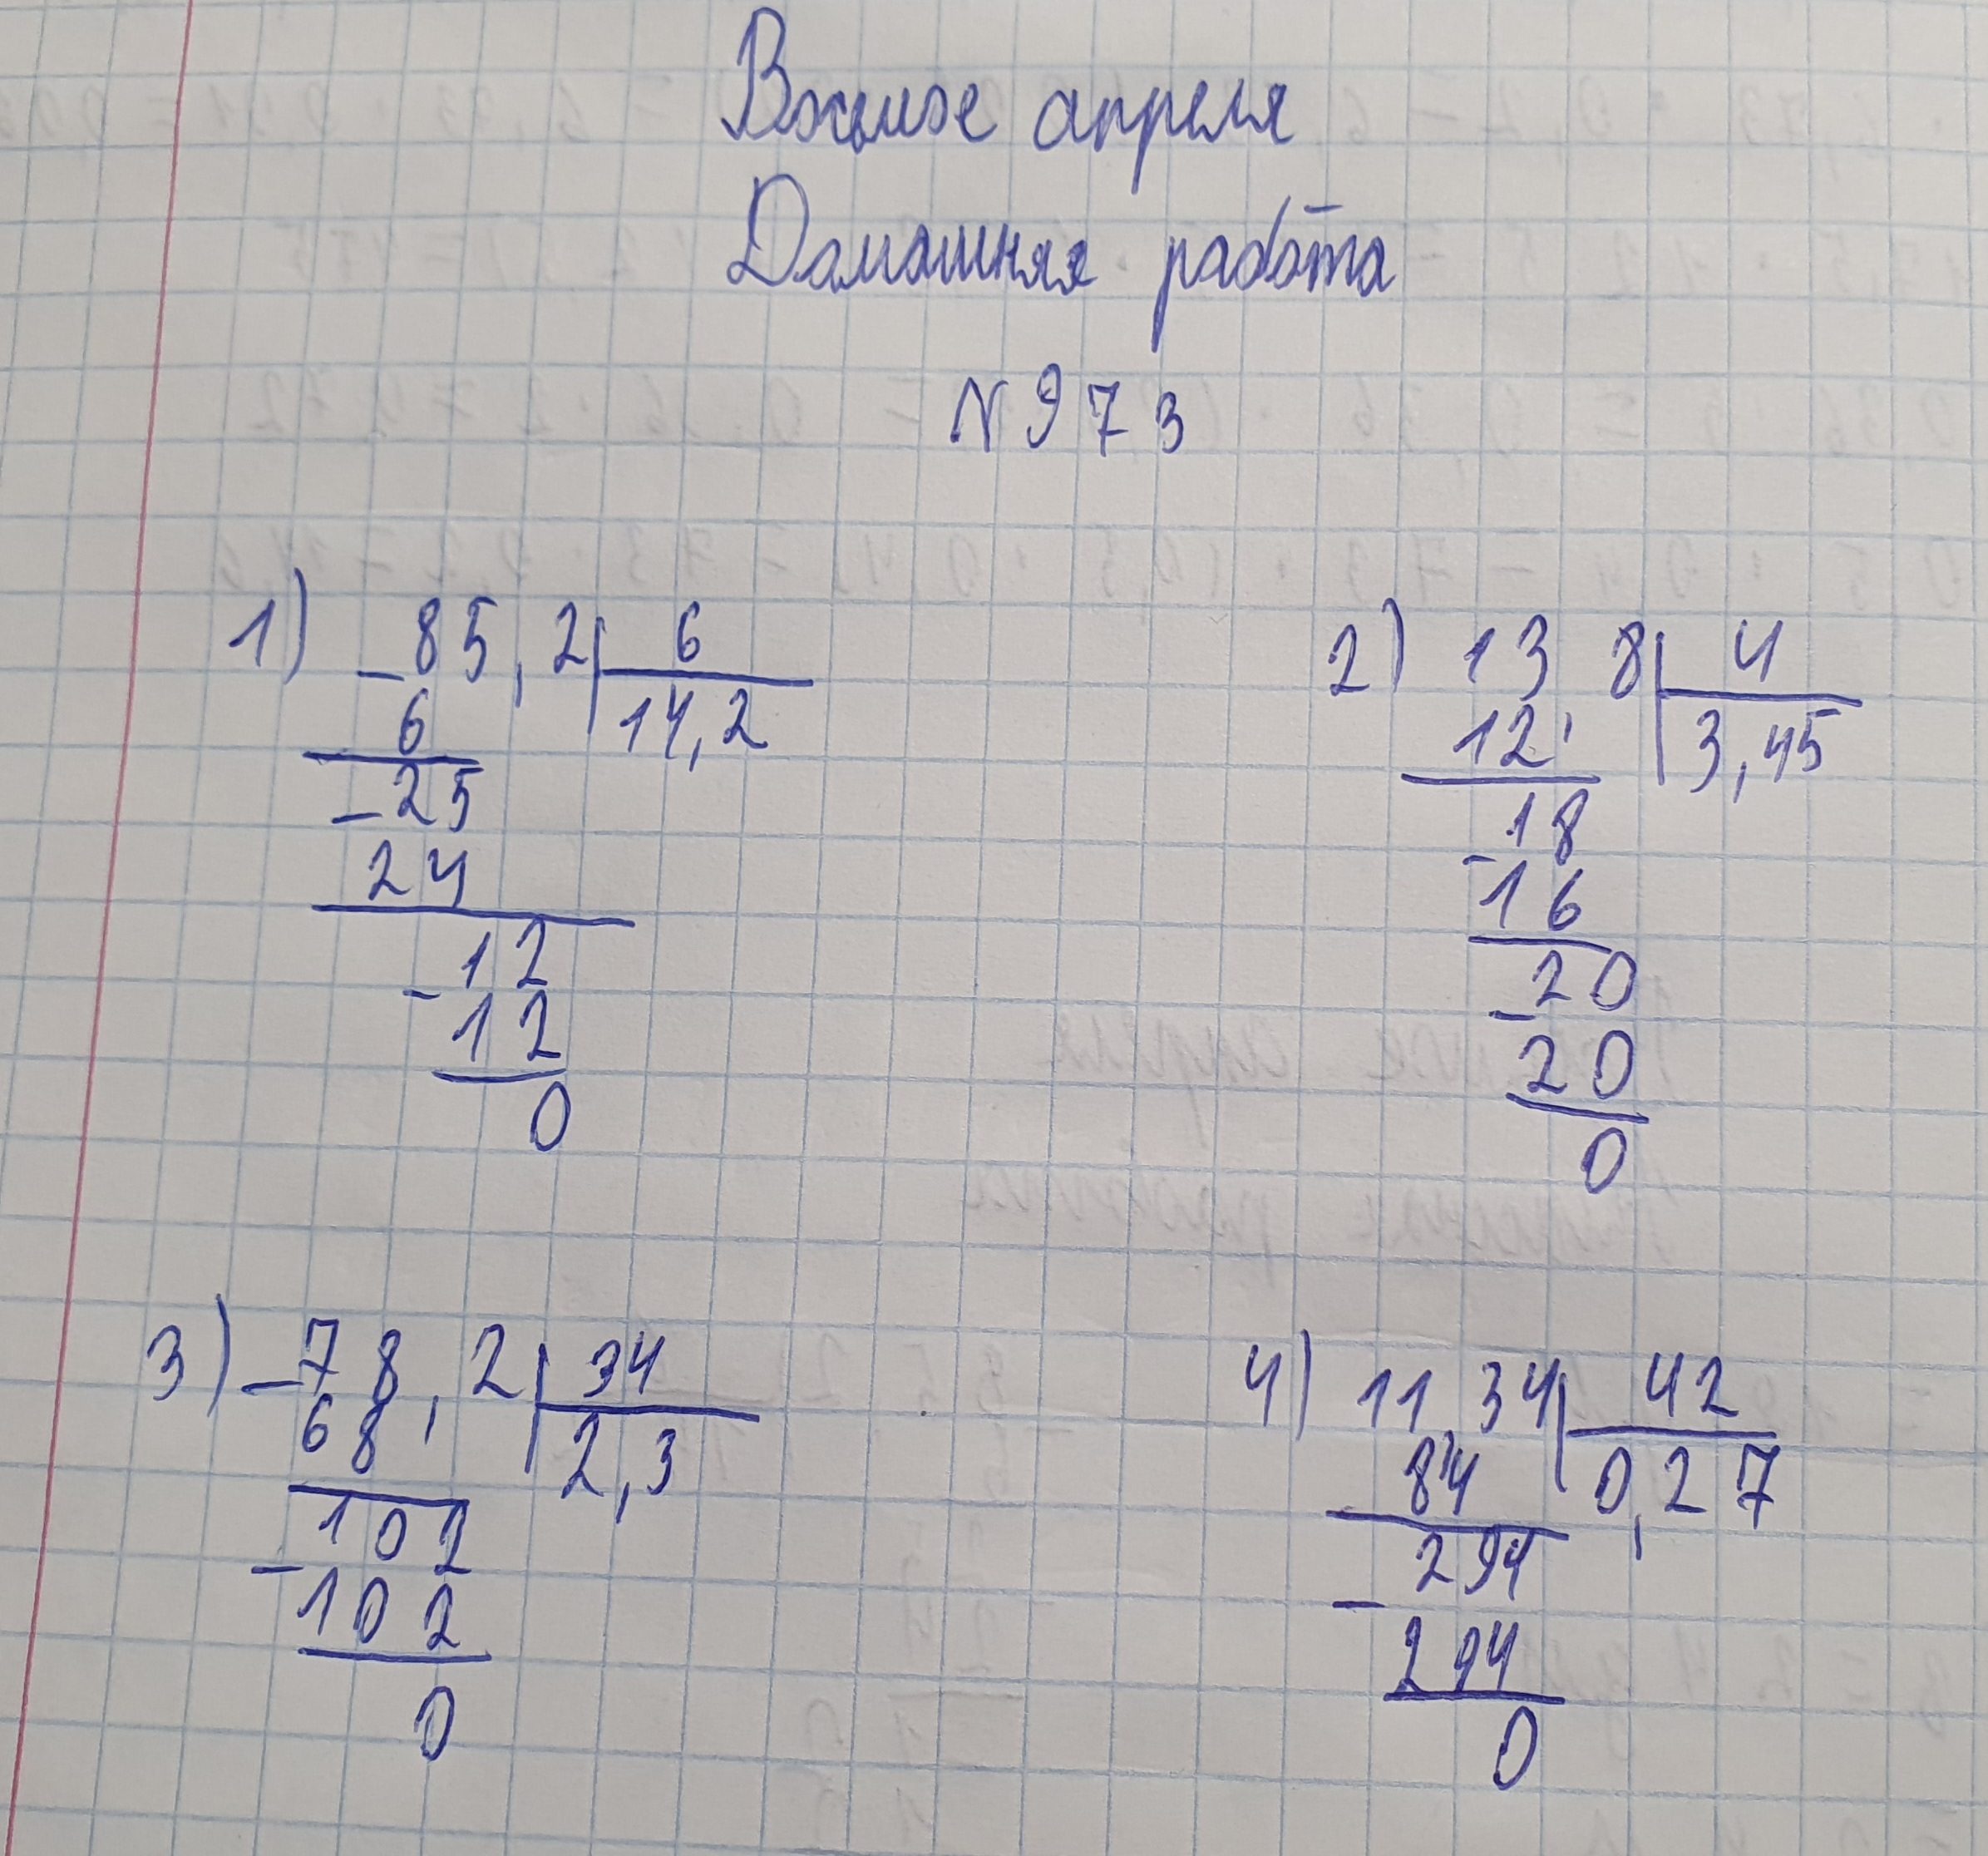 Восьмое апреля
Домашняя работа
№973
1) 85,2 | 6
6 | 14,2
-25
24
-12
12
0
2) 13,8 | 4
12 | 3,45
18
-16
20
-20
0
3) -78,2 | 34
68 | 2,3
102
-102
0
4) 11,34 | 42
84 | 0,27
294
-294
0